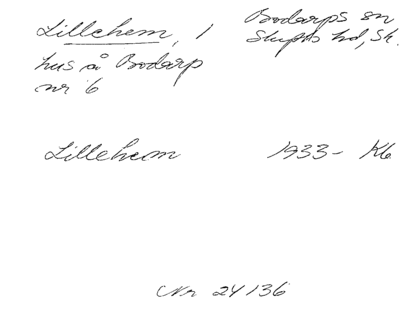 Lillehem, 1
hus å Bodarp
nr 6
Bodarps sn
Skytts hd, Sk.
Lillehem 1933- Kb
Nr 24136